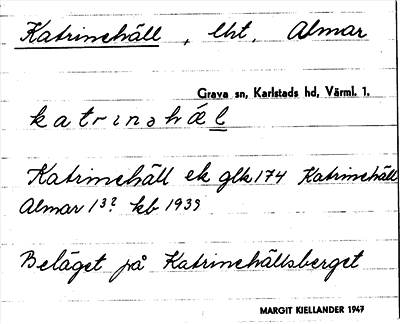 Katrinehäll, lht, Almar
Grava sn, Karlstads hd, Värml. l.
katrinəhæl
Katrinehäll ek glk 174 Katrinehäll
Almar 1³² kb 1939
Beläget på Katrinehällsberget
MARGIT KIELLANDER 1947